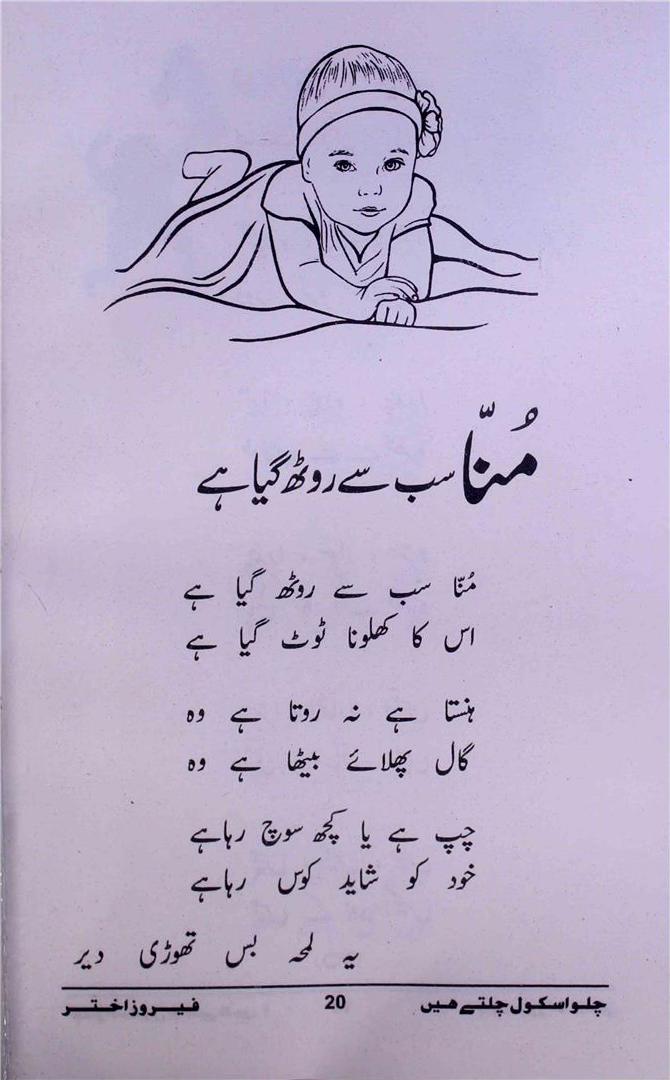 مُنّا سب سے روٹھ گیا ہے
مُنّا سب سے روٹھ گیا ہے
اس کا کھلونا ٹوٹ گیا ہے
ہنستا ہے نہ روتا ہے وہ
گال پھلائے بیٹھا ہے وہ
چپ ہے یا کچھ سوچ رہاہے
خود کو شاید کوس رہاہے
یہ لمحہ بس تھوڑی دیر
چلو اسکول چلتے ھیں 20 فیروز اختر